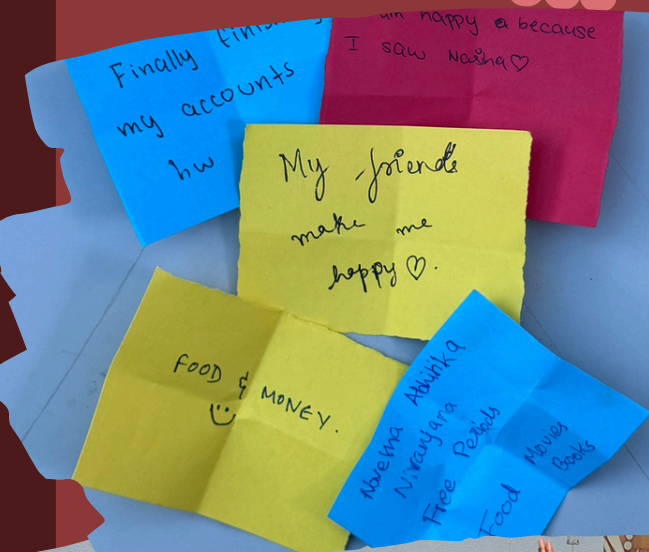 Finally
my accounts
hw
am happy a because
I saw Naisha♡
My friends
make me
happy ♡.
FOOD & MONEY.
Abhihka
Niranjana
Free Periods
Food
Movies
Books